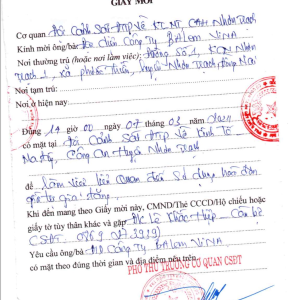 GIẤY MỜI
Cơ quan Đội Cảnh Sát ĐTTP Về KT, MT CAH Nhơn Trạch
Kính mời ông/bà: Đại diện Công Ty BALem ViNA
Nơi thường trú (hoặc nơi làm việc): Đường Số 1, KCN Nhơn
Trạch 1, xã phước Thiền, huyện Nhơn Trạch Đồng Nai
Nơi tạm trú:
Nơi ở hiện nay
Đúng 14 giờ 00 ngày 07 tháng 03
có mặt tại Đội Cảnh Sát ĐTTP Về Kinh Tế
Ma túy, Công An Huyện Nhơn Trạch
để Làm việc liên Quan đến Sử dụng hóa đơn
Khi đến mang theo Giấy mời này, CMND/Thẻ CCCD/Hộ chiếu hoặc
giấy tờ tùy thân khác và gặp Đ/c Lê Khắc Hiệp - Cán bộ
CSĐT
Yêu cầu ông/bà Công Ty BALem ViNA
có mặt theo đúng thời gian và địa điểm nêu trên.
PHÓ THỦ TRƯỞNG CƠ QUAN CSĐT